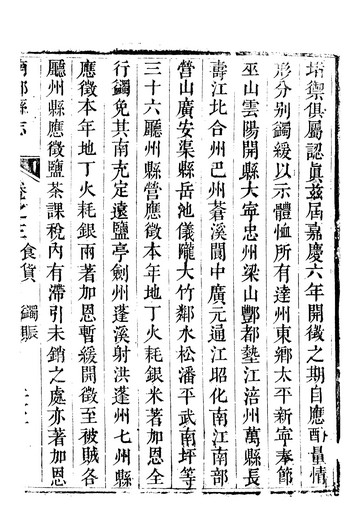 堵禦俱屬認眞茲屆嘉慶六年開徵之期自應酌量情
形分别蠲緩以示體恤所有達州東鄉太平新寧奉節
巫山雲陽開縣大寧忠州梁山酆都墊江涪州萬縣長
壽江北合州巴州蒼溪閬中廣元通江昭化南江南部
營山廣安渠縣岳池儀隴大竹鄰水松潘平武南坪等
三十六廳州縣營應徵本年地丁火耗銀米著加恩全
行蠲免其南充定遠鹽亭劍州蓬溪射洪蓬州七州縣
應徵本年地丁火耗銀兩著加恩暫緩開徵至被賊各
廳州縣應徵鹽茶課稅內有滯引未銷之處亦著加恩
南部縣志 卷之三 食貨 蠲賑